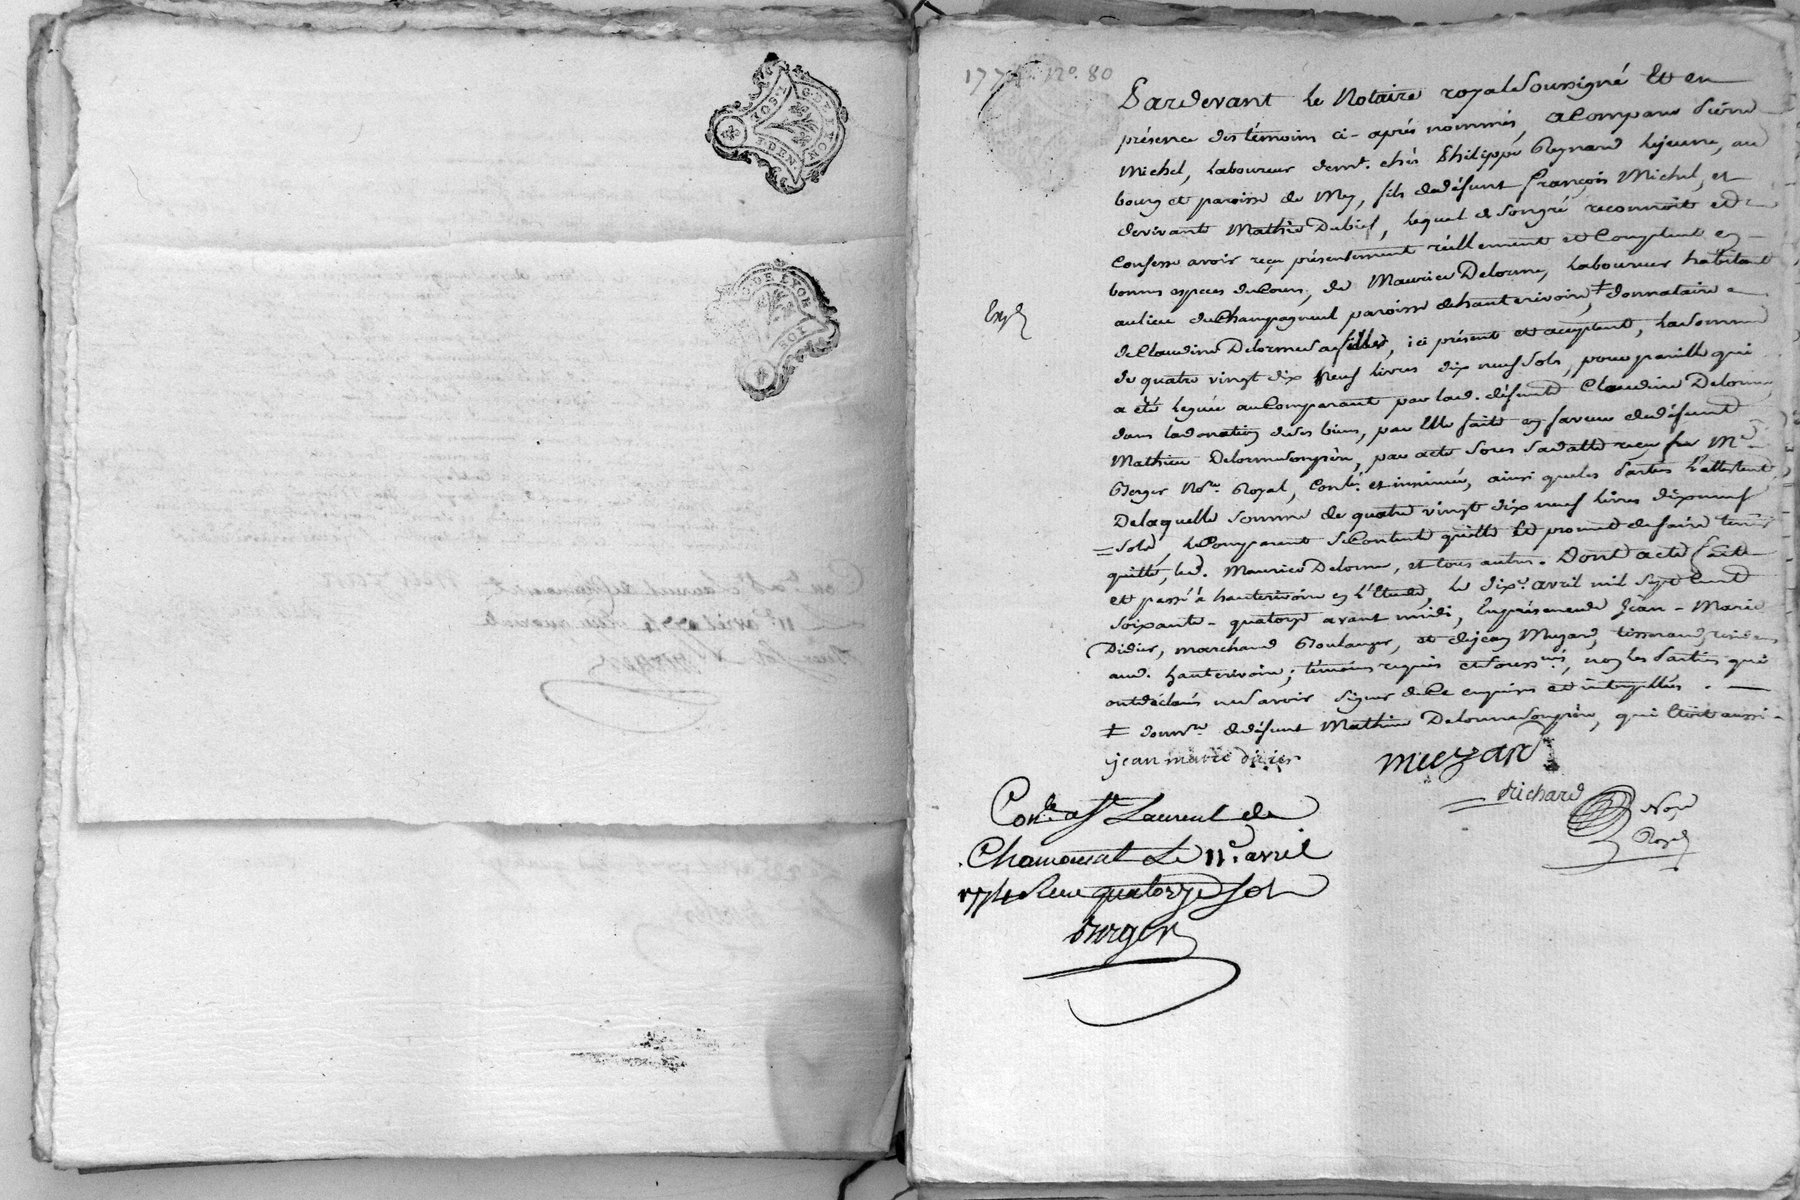 2.SOLS
G.DE LYON
2.DEN
G.DE LYON
SOLS
1774. N°. 80
Pardevant le Notaire royal Soussigné Et en
présence des témoins ci-après nommés, a Comparu Pierre
Michel, Laboureur demt. chés Philippe Reynard le jeune, au
bourg et paroisse de Mey, fils de défunt françois Michel, et
de vivante Mathie Dubief, lequel de son gré reconnoit et
Confesse avoir reçu présentement réellement et Comptent en
bonnes especes du Cours, de Maurice Delorme, Laboureur habitant
au lieu du Champagneul paroisse de hauterivoire, ‡ donnataire
de Claudine Delorme sa fille, ici présent et acceptant, la somme
de quatre vingt dix Neuf livres dix neuf Sols, pour pareille qui
a été leguée au Comparant par lad. défunte Claudine Delorme
dans la donation de ses biens, par Elle faite en faveur de défunt
Mathieu Delorme son père, par acte sous sa datte reçu par Me
Berger Nore. Royal, Conlé. et insinué, ainsi que les Parties l'attestent
De laquelle Somme de quatre vingt dix neuf livres dix neuf
= Sols le Comparant Se Contente quitte Et promet de faire tenir
quitte, led. Maurice Delorme, et tous autres. Dont acte fait
et passé à hauterivoire en l'Etude, le dixe. avril mil Sept Cent
Soixante-quatorze avant midi, En présence de Jean-Marie
Didier, marchand Boulanger, et de jean Muzard, tisserand, résidens
aud. hauterivoire, témoins requis et soussignés, non les Parties qui
ont déclaré ne savoir signer de Ce enquises et interpellées. —
‡ donnre de défunt Mathieu Delorme son père, qui Etoit aussi -
jean marie didier
muzard
Richard
Nore
Royal
Conlé a St Laurent de
Chamousset Le 11e. avril
1774 Reçu quatorze Sols
Berger